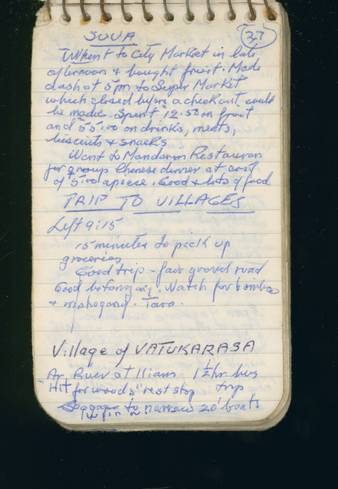 SUVA
37
Went to City Market in late
afternoon & bought fruit. Made
dash at 5 pm to Super Market
which closed before a checkout could
be made. Spent 12.50 on fruit
and on drinks, meats,
biscuits & snacks
Went to Mandarin Restauran
for group Chinese dinner at cost
of 5.00 apiece. Good & lots of food
TRIP TO VILLAGES
Left 9:15
15 minutes to pick up
groceries
Good trip - fair gravel road
Good botany. Watch for bamboo
& mahogany. Taro
Village of VATUKARASA
Ar. River at 11am 1½ hr bus
"Hit for woods" rest stop trip
Luggage to narrow 20' boats